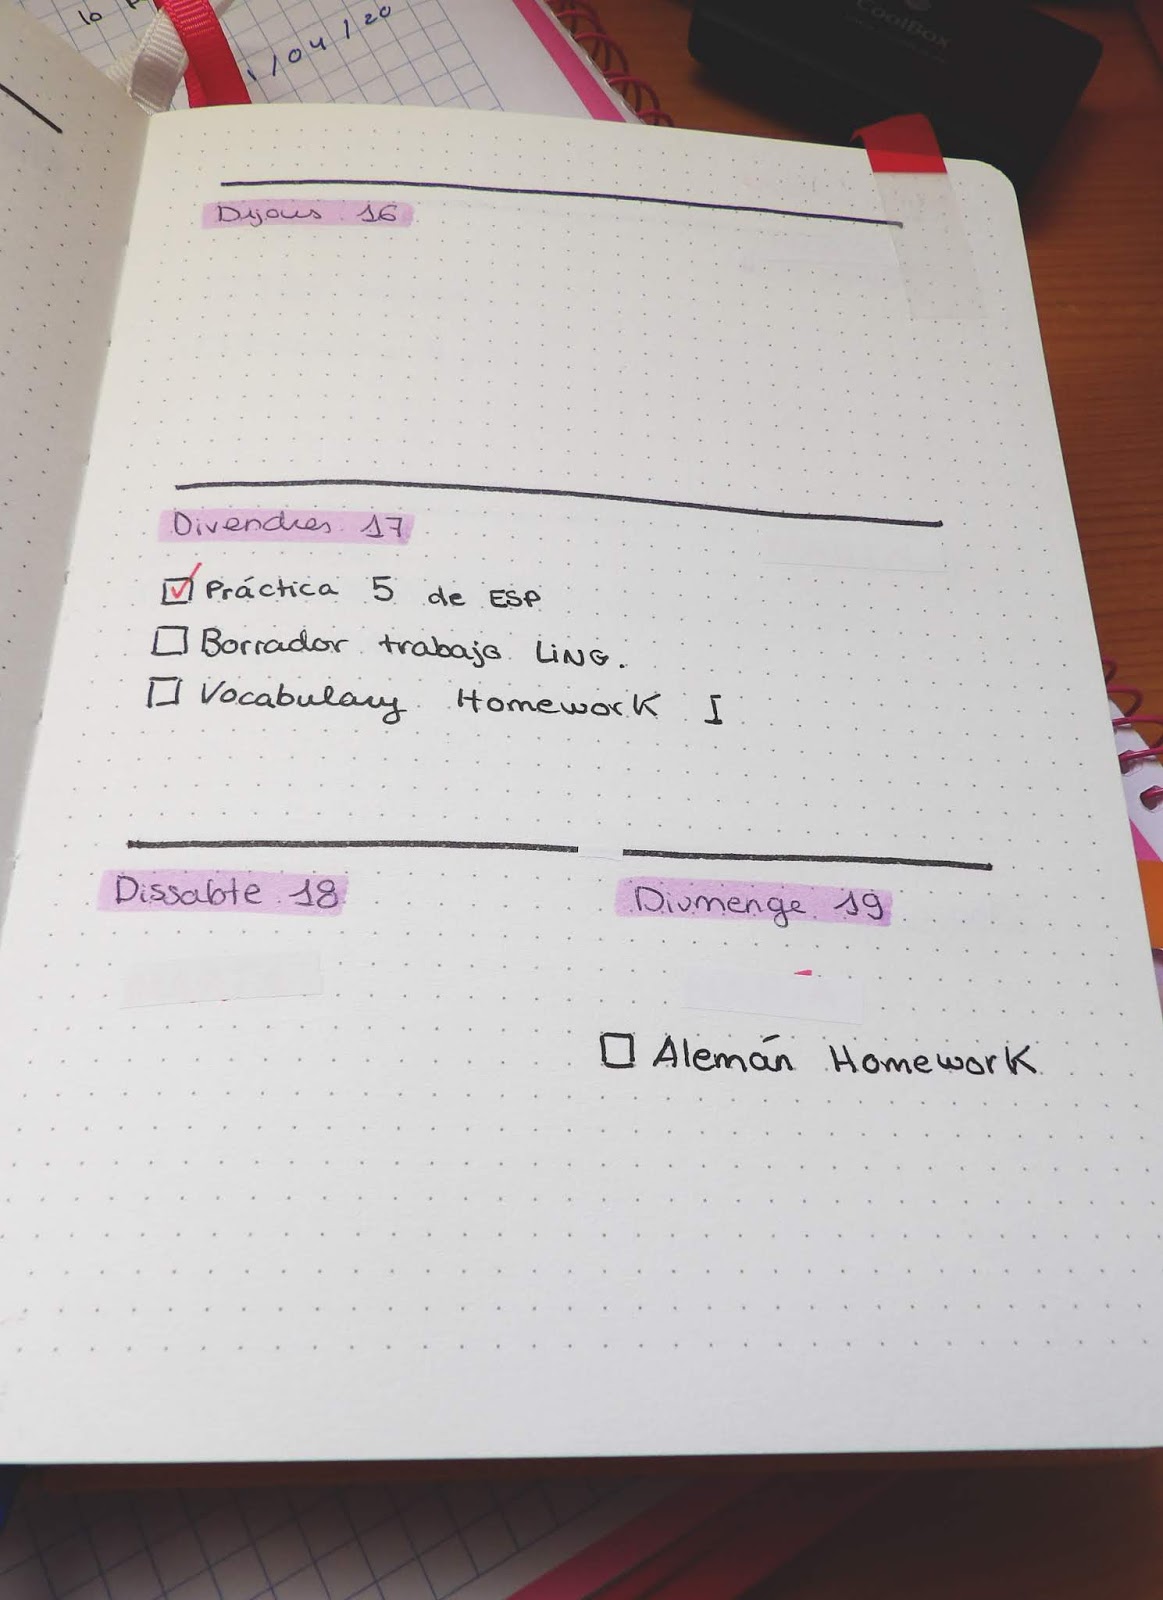 /04/20
CoolBox
Dijous 16
Divendres 17
Práctica 5 de ESP
Borrador trabajo LING.
Vocabulary Homework I
Dissabte 18
Diumenge 19
Alemán Homework